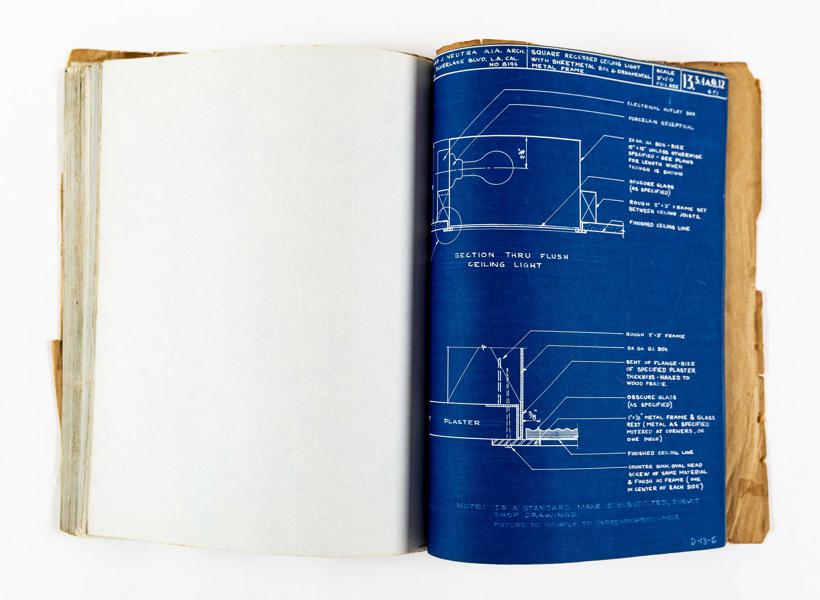 J. NEUTRA A.I.A. ARCH.
SILVERLAKE BLVD, L.A, CAL.
NO 8194
SQUARE RECESSED CEILING LIGHT
WITH SHEETMETAL BOX & ORNAMENTAL
METAL FRAME.
SCALE
FULL SIZE
13.
ELECTRICAL OUTLET BOX
PORCELAIN RECEPTICAL
24 GA. G.I. BOX - SIZE
12"×12" UNLESS OTHERWISE
SPECIFIED - SEE PLANS
FOR LENGTH WHEN
TROUGH IS SHOWN
OBSCURE GLASS
(AS SPECIFIED)
ROUGH 2"×3" FRAME SET
BETWEEN CEILING JOISTS.
FINISHED CEILING LINE
SECTION THRU FLUSH
CEILING LIGHT
ROUGH 2"×3" FRAME
24 GA. G.I. BOX
BENT UP FLANGE - SIZE
OF SPECIFIED PLASTER
THICKNESS - NAILED TO
WOOD FRAME.
OBSCURE GLASS
(AS SPECIFIED)
METAL FRAME & GLASS
REST (METAL AS SPECIFIED
MITERED AT CORNERS, OR
ONE PIECE)
PLASTER
FINISHED CEILING LINE
COUNTER SUNK OVAL HEAD
SCREW OF SAME MATERIAL
& FINISH AS FRAME (ONE
IN CENTER OF EACH SIDE)
NOTE: IF A STANDARD MAKE IS SUBSTITUTED, SUBMIT
SHOP DRAWINGS.
FIXTURE TO COMPLY TO UNDERWRITERS
D-13-6